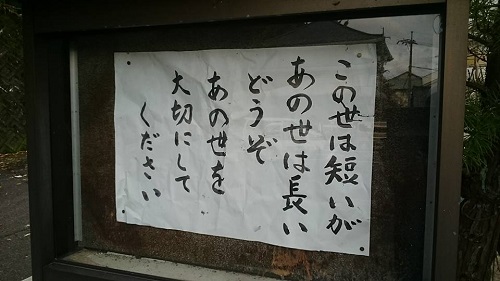 この世は短いが
あの世は長い
どうぞ
あの世を
大切にして
ください